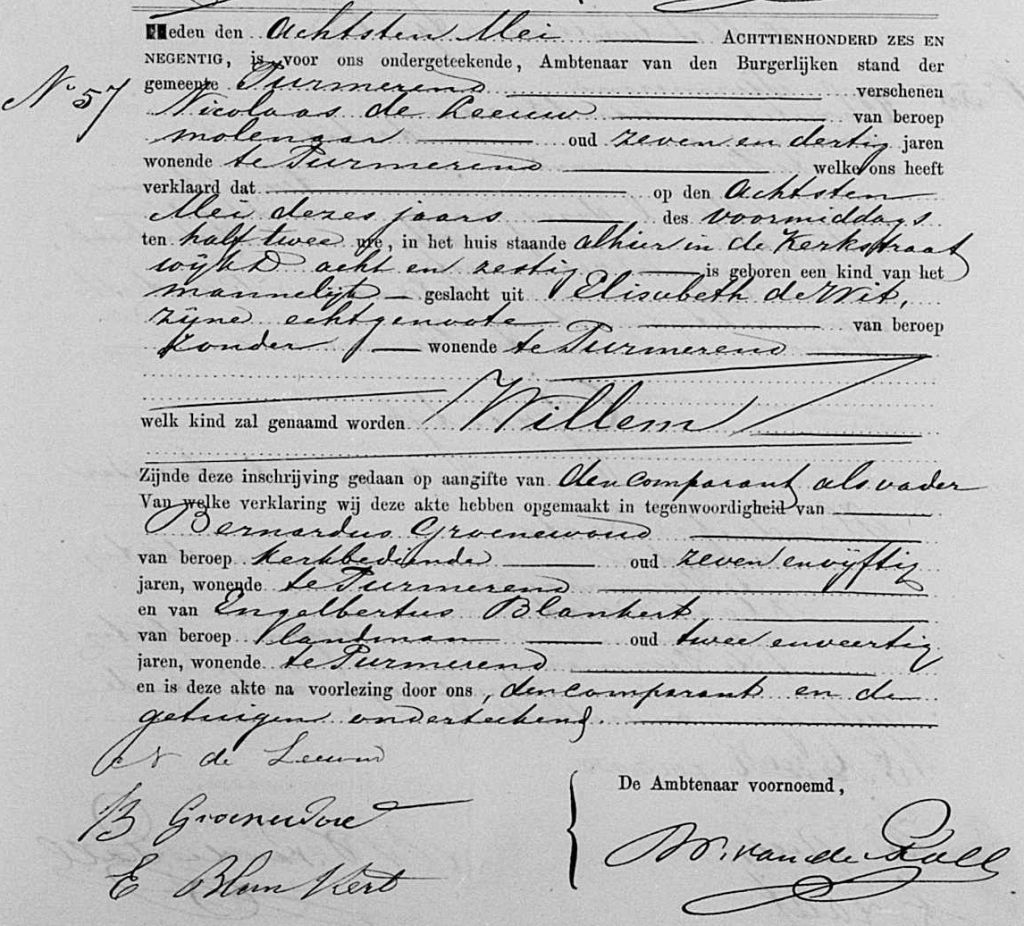 Heden den Achtsten Mei ACHTTIENHONDERD ZES EN
NEGENTIG, is voor ons ondergeteekende, Ambtenaar van den Burgerlijken stand der
No 57
gemeente Purmerend verschenen
Nicolaas de Leeuw van beroep
molenaar oud zeven en dertig jaren
wonende te Purmerend welke ons heeft
verklaard dat op den Achtsten
Mei dezes jaars des voormiddags
ten half twee ure, in het huis staande alhier in de Kerkstraat
wijk D acht en zestig is geboren een kind van het
mannelijk geslacht uit Elisabeth de Wit,
zijne echtgenoote van beroep
zonder wonende te Purmerend
welk kind zal genaamd worden Willem
Zijnde deze inschrijving gedaan op aangifte van den comparant als vader
Van welke verklaring wij deze akte hebben opgemaakt in tegenwoordigheid van
Bernardus Groenewoud
van beroep kerkbediende oud zeven en vijftig
jaren, wonende te Purmerend
en van Engelbertus Blankert
van beroep landman oud twee en veertig
jaren, wonende te Purmerend
en is deze akte na voorlezing door ons, den comparant en de
getuigen onderteekend.
N de Leeuw
De Ambtenaar voornoemd,
B Groenewoud
E Blankert